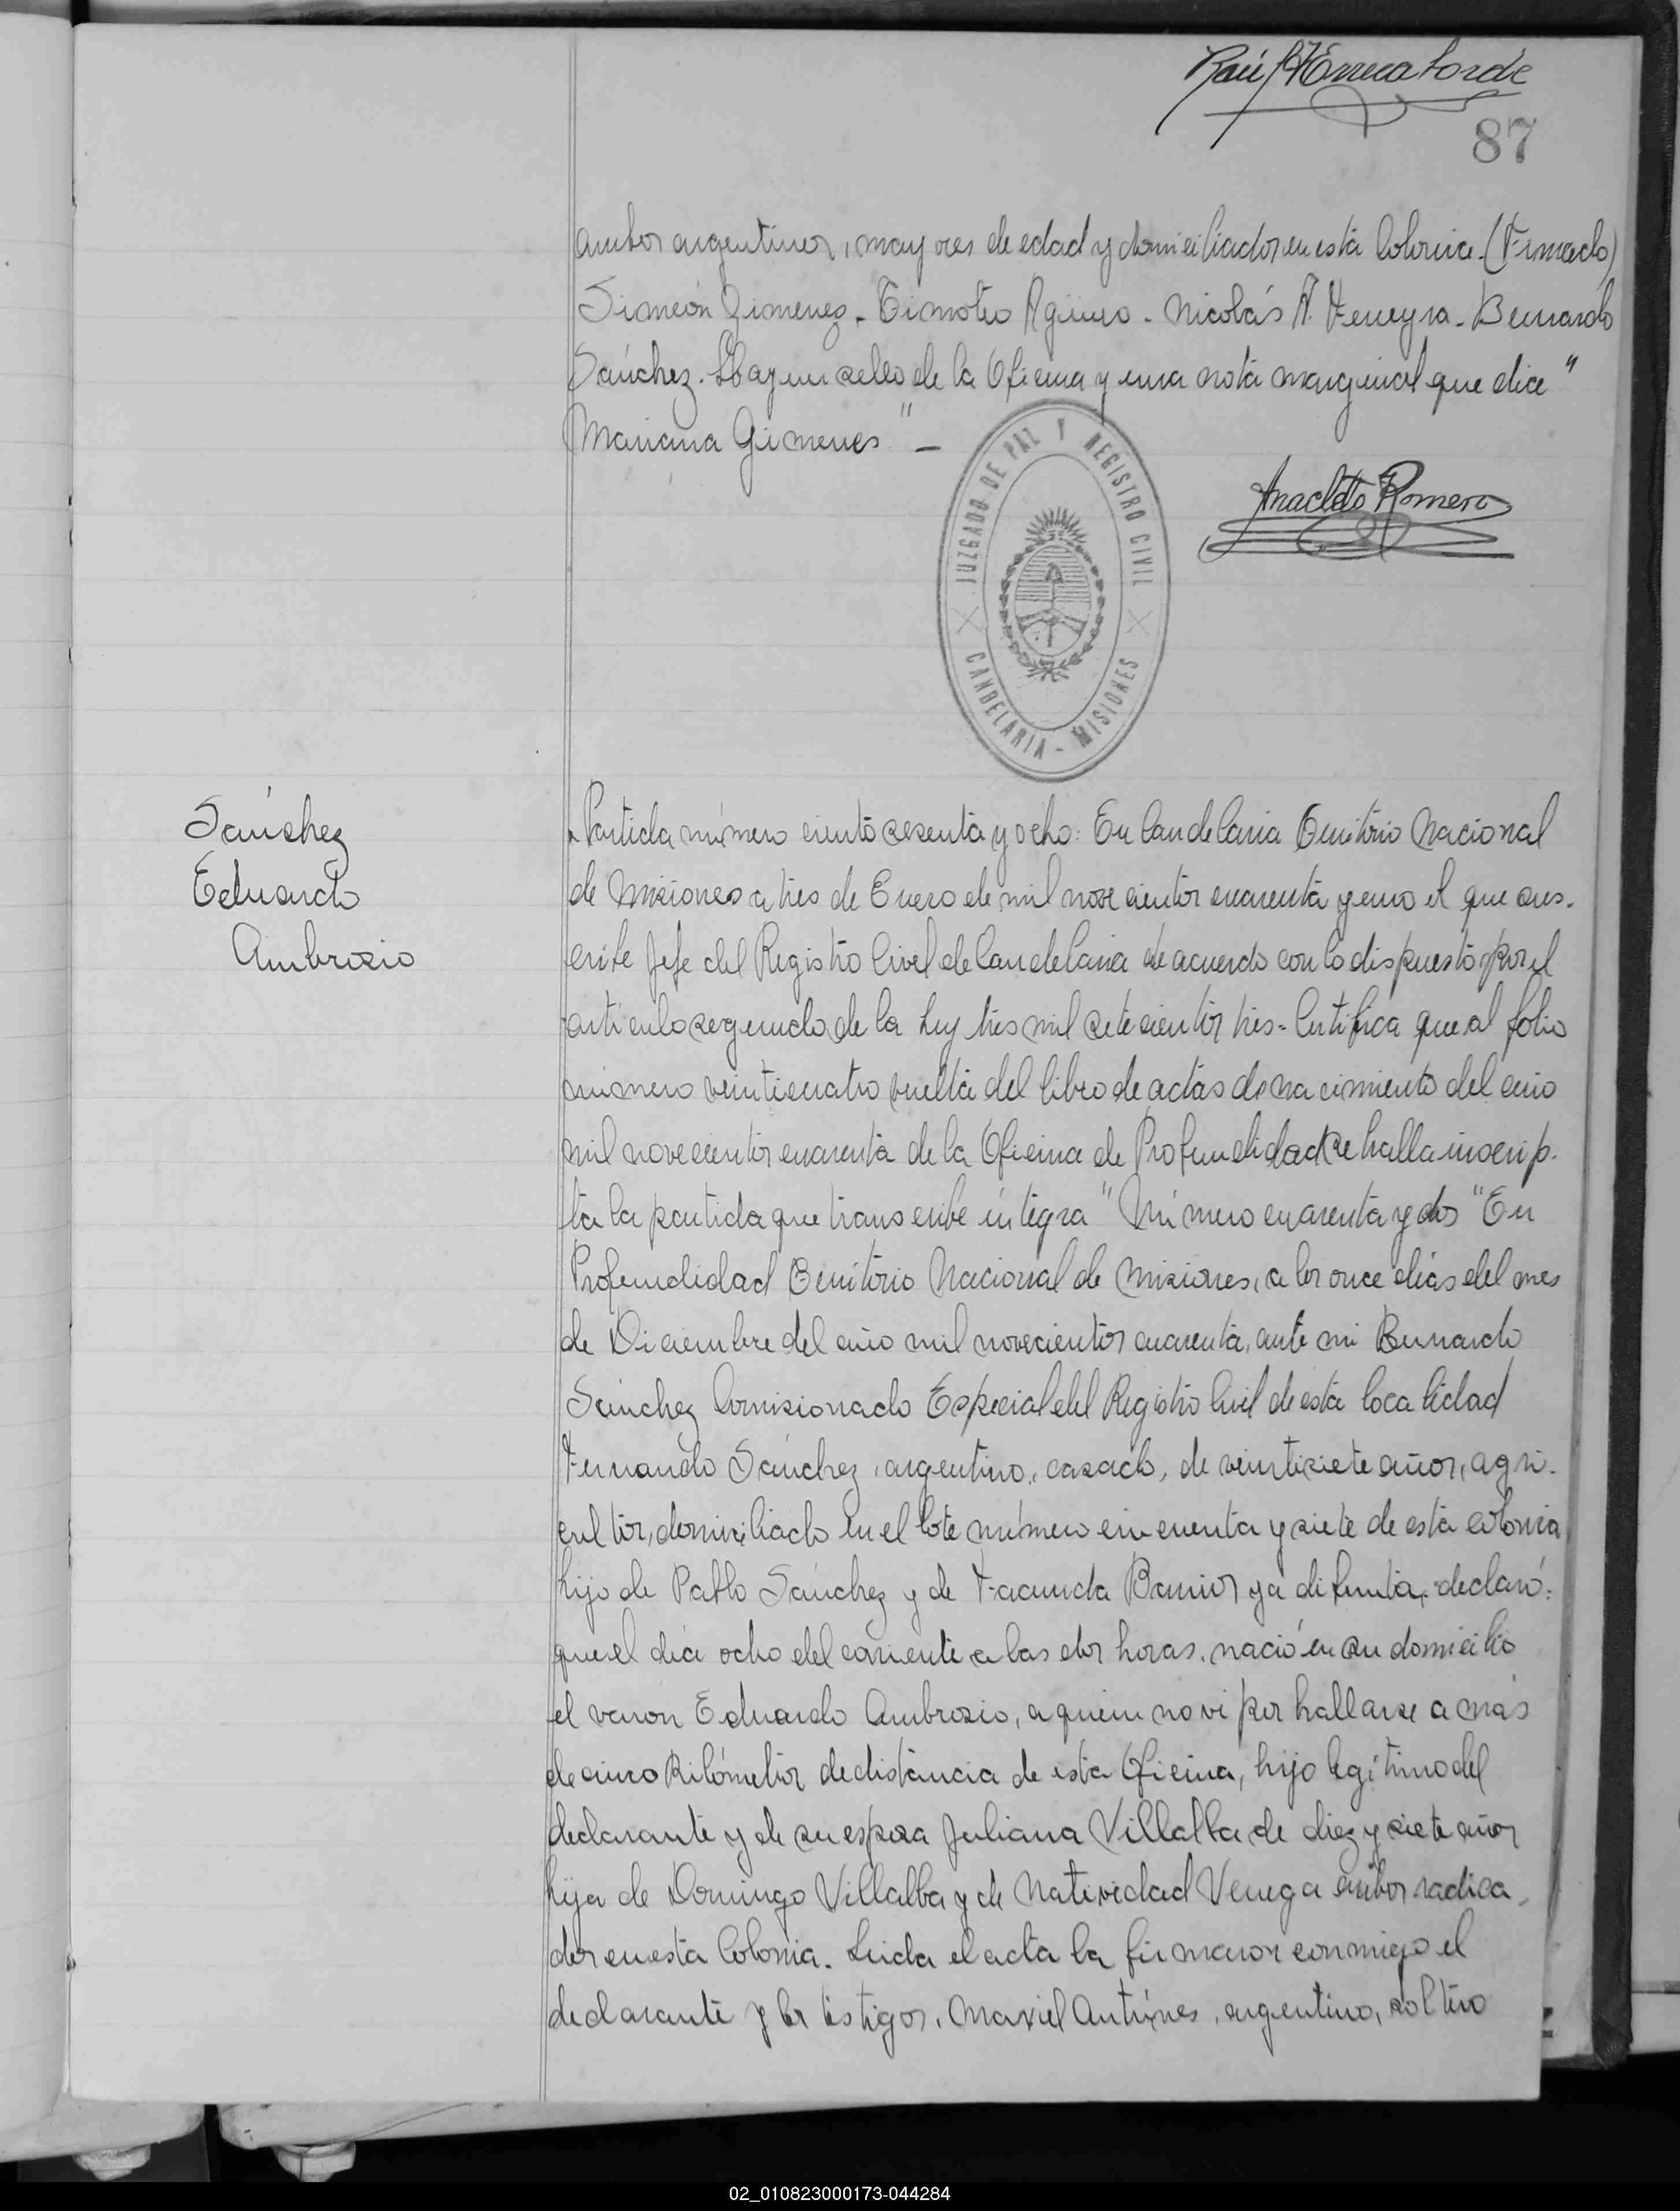 87
ambos argentinos, mayores de edad y domiciliados en esta Colonia. (Firmado)
Simeón Gimenez. Timoteo Agüero. Nicolás A. Ferreyra. Bernardo
Sánchez. Hay un sello de la Oficina y una nota marginal que dice "
Mariana Gimenes" —
JUZGADO DE PAZ Y REGISTRO CIVIL
CANDELARIA - MISIONES
Anacleto Romero
Sánchez
Eduardo
Ambrosio
Partida número ciento sesenta y ocho: En Candelaria Territorio Nacional
de Misiones a tres de Enero de mil novecientos cuarenta y uno el que sus-
cribe Jefe del Registro Civil de Candelaria de acuerdo con lo dispuesto por el
artículo segundo de la Ley tres mil setecientos tres = Certifica que al folio
número veinticuatro vuelta del libro de actas de nacimiento del año
mil novecientos cuarenta de la Oficina de Profundidad se halla inscrip-
ta la partida que transcribe íntegra "Número cuarenta y dos "En
Profundidad Territorio Nacional de Misiones, a los once días del mes
de Diciembre del año mil novecientos cuarenta, ante mi Bernardo
Sánchez Comisionado Especial del Registro Civil de esta localidad
Fernando Sánchez, argentino, casado, de veintisiete años, agri-
cultor, domiciliado en el lote número cincuenta y siete de esta colonia
hijo de Pablo Sánchez y de Facunda Barrios ya difunta, declaró:
que el día ocho del corriente a las dos horas, nació en su domicilio
el varon Eduardo Ambrosio, a quien no vi por hallarse a más
de cinco kilómetros de distancia de esta Oficina, hijo legítimo del
declarante y de su esposa Juliana Villalba de diez y siete años
hija de Domingo Villalba y de Natividad Venega ambos radica-
dos en esta Colonia. Leida el acta la firmaron conmigo el
declarante y los testigos, Maxiel Antúnes, argentino, soltero
02_010823000173-044284